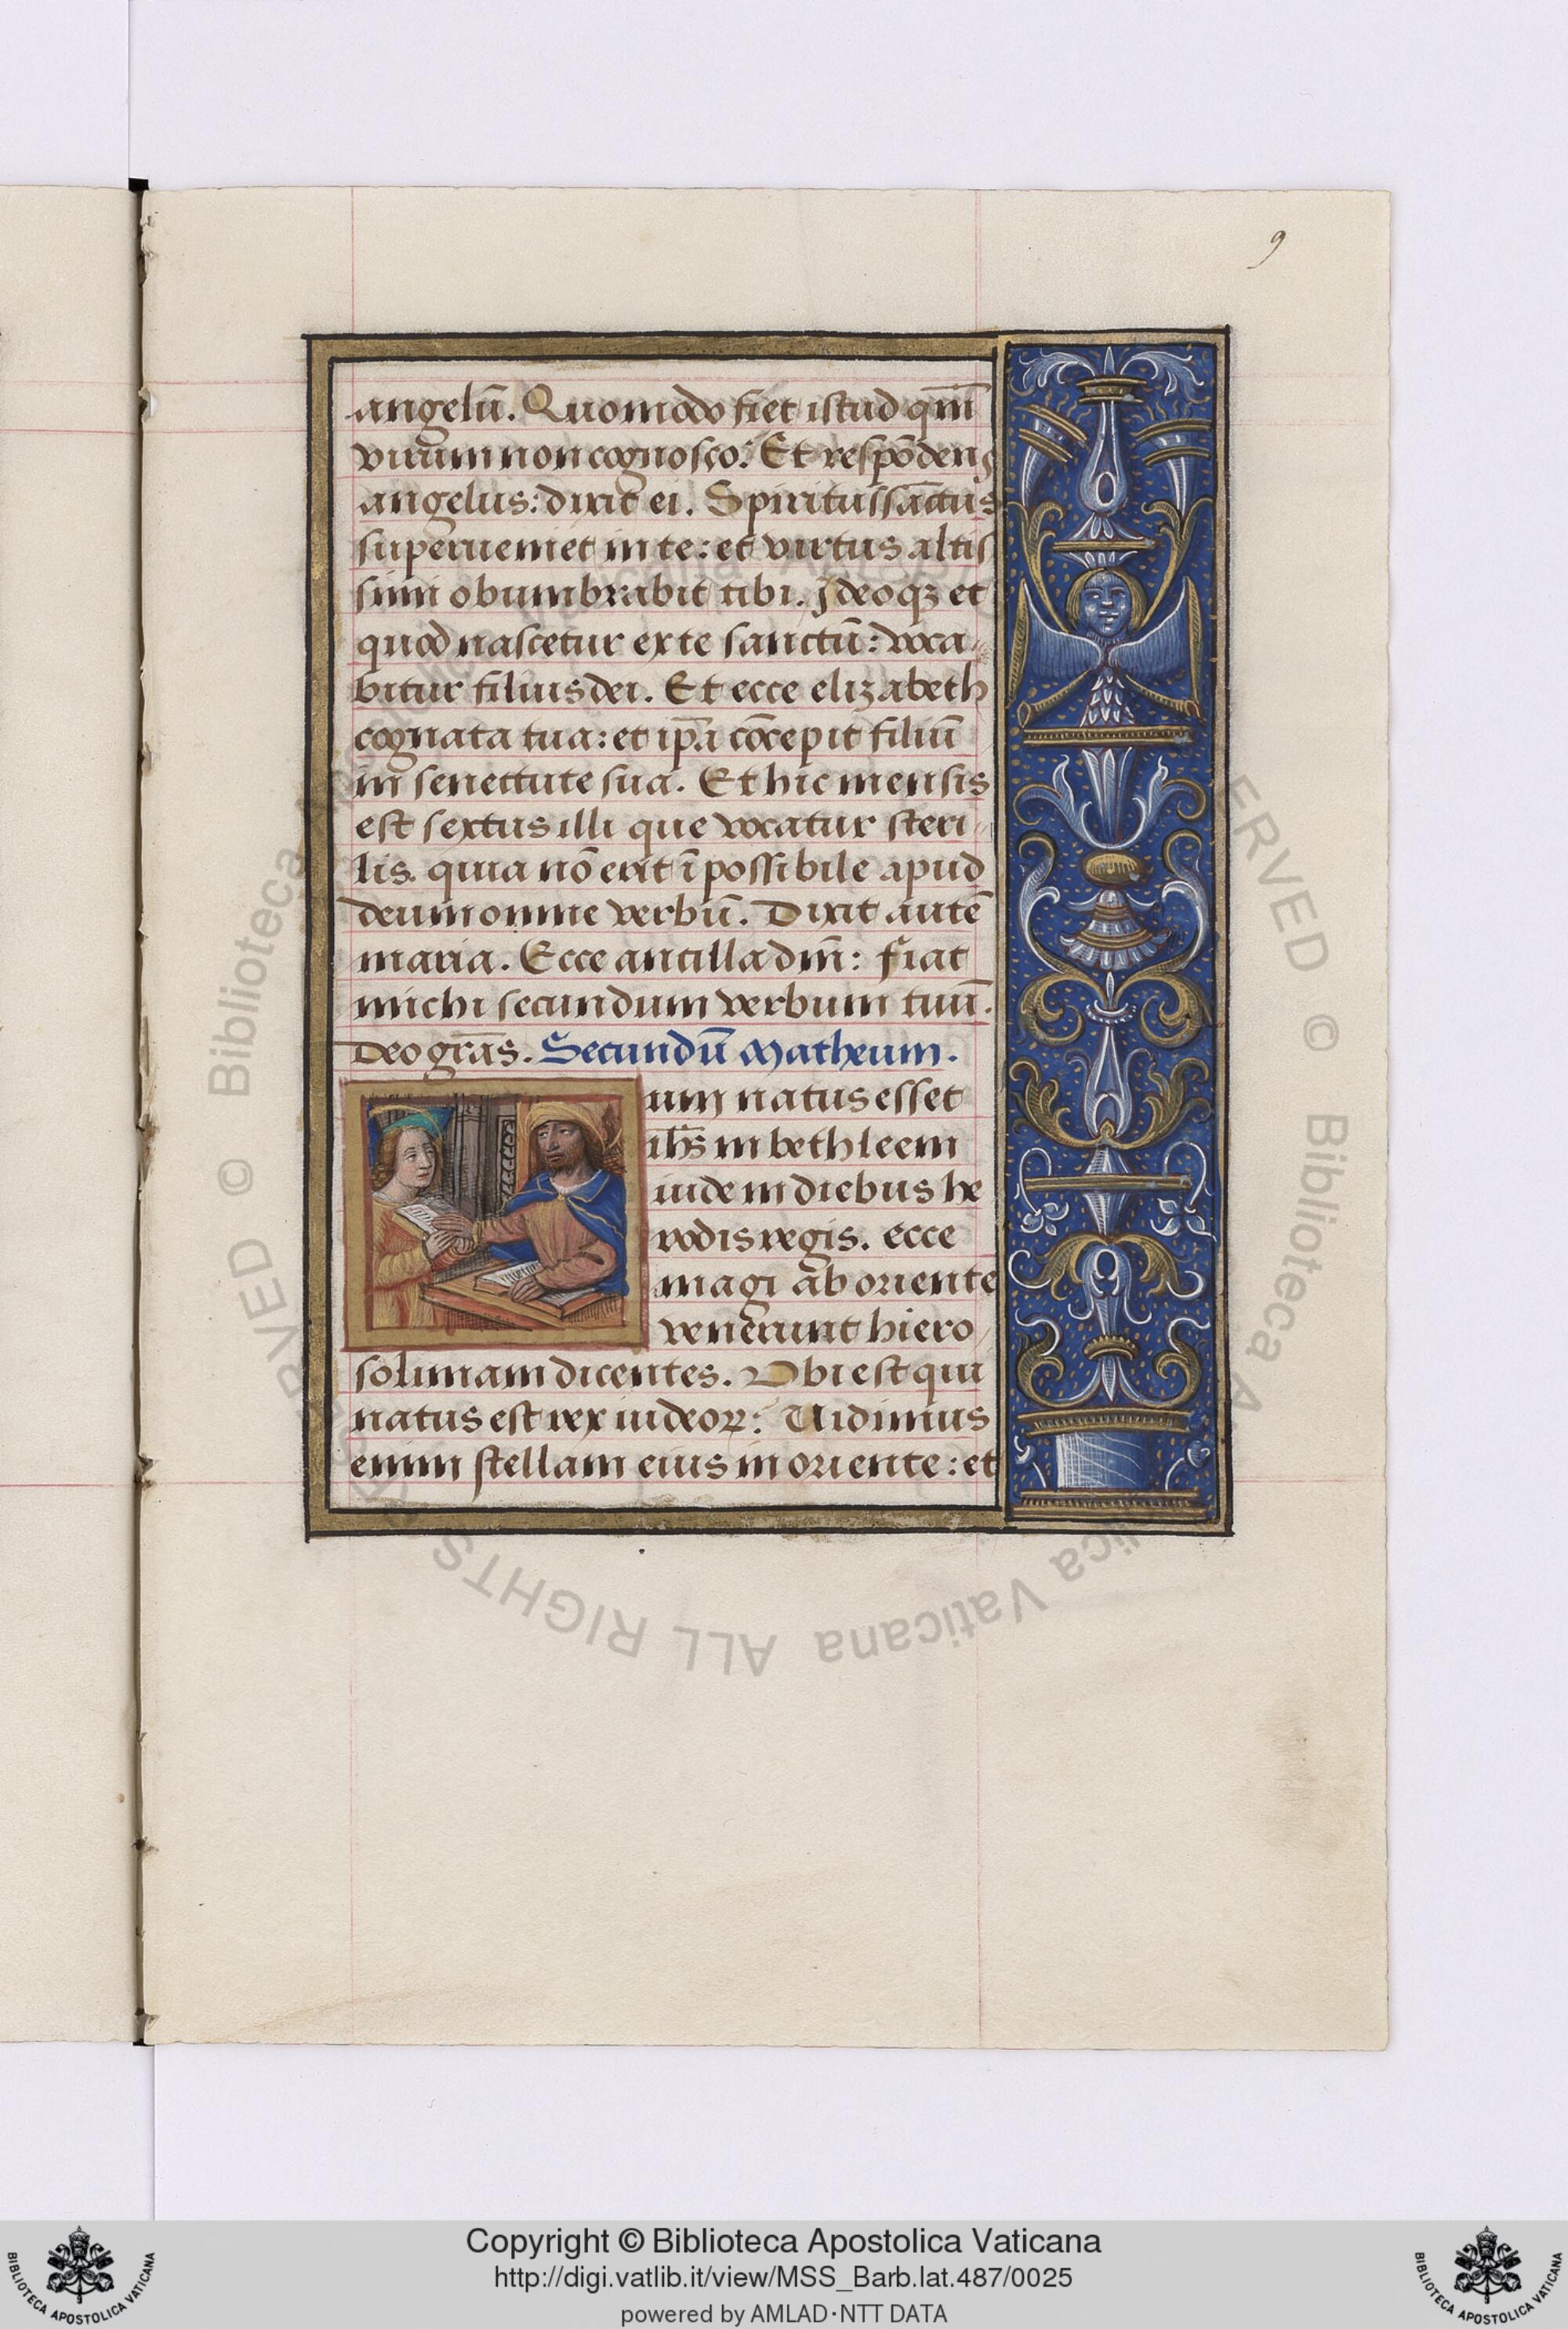 9
angelū. Quomodo fiet istud qm̄
virum non cognosco? Et respōdens
angelus: dixit ei. Spiritussāctus
superueniet in te: et virtus altis
simi obumbrabit tibi. Ideoqz et
quod nascetur ex te sanctū: voca
bitur filius dei. Et ecce elizabeth
cognata tua: et ip̄a cōcepit filiū
in senectute sua. Et hic mensis
est sextus illi que vocatur steri
lis. quia nō erit īpossibile apud
deum omne verbū. Dixit autē
maria. Ecce ancilla dn̄i: fiat
michi secundum verbum tuū.
Deo grās. Secundū Matheum.
um natus esset
ih̄s in bethleem
iude in diebus he
rodis regis. ecce
magi ab oriente
venerunt hiero
solimam dicentes. Vbi est qui
natus est rex iudeoꝝ: Uidimus
enim stellam eius in oriente: et
Copyright © Biblioteca Apostolica Vaticana
http://digi.vatlib.it/view/MSS_Barb.lat.487/0025
powered by AMLAD·NTT DATA
BIBLIOTECA APOSTOLICA VATICANA
BIBLIOTECA APOSTOLICA VATICANA